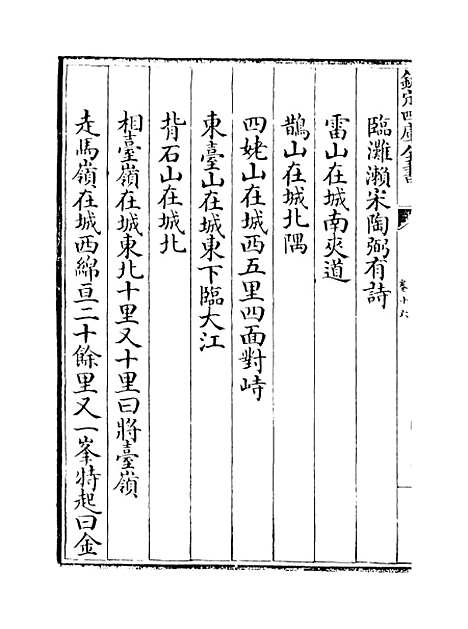 欽定四庫全書
卷十六
臨灘瀨宋陶弼有詩
雷山在城南夾道
鵲山在城北隅
四姥山在城西五里四面對峙
東臺山在城東下臨大江
背石山在城北
相臺嶺在城東北十里又十里曰將臺嶺
走馬嶺在城西綿亘二十餘里又一峯特起曰金